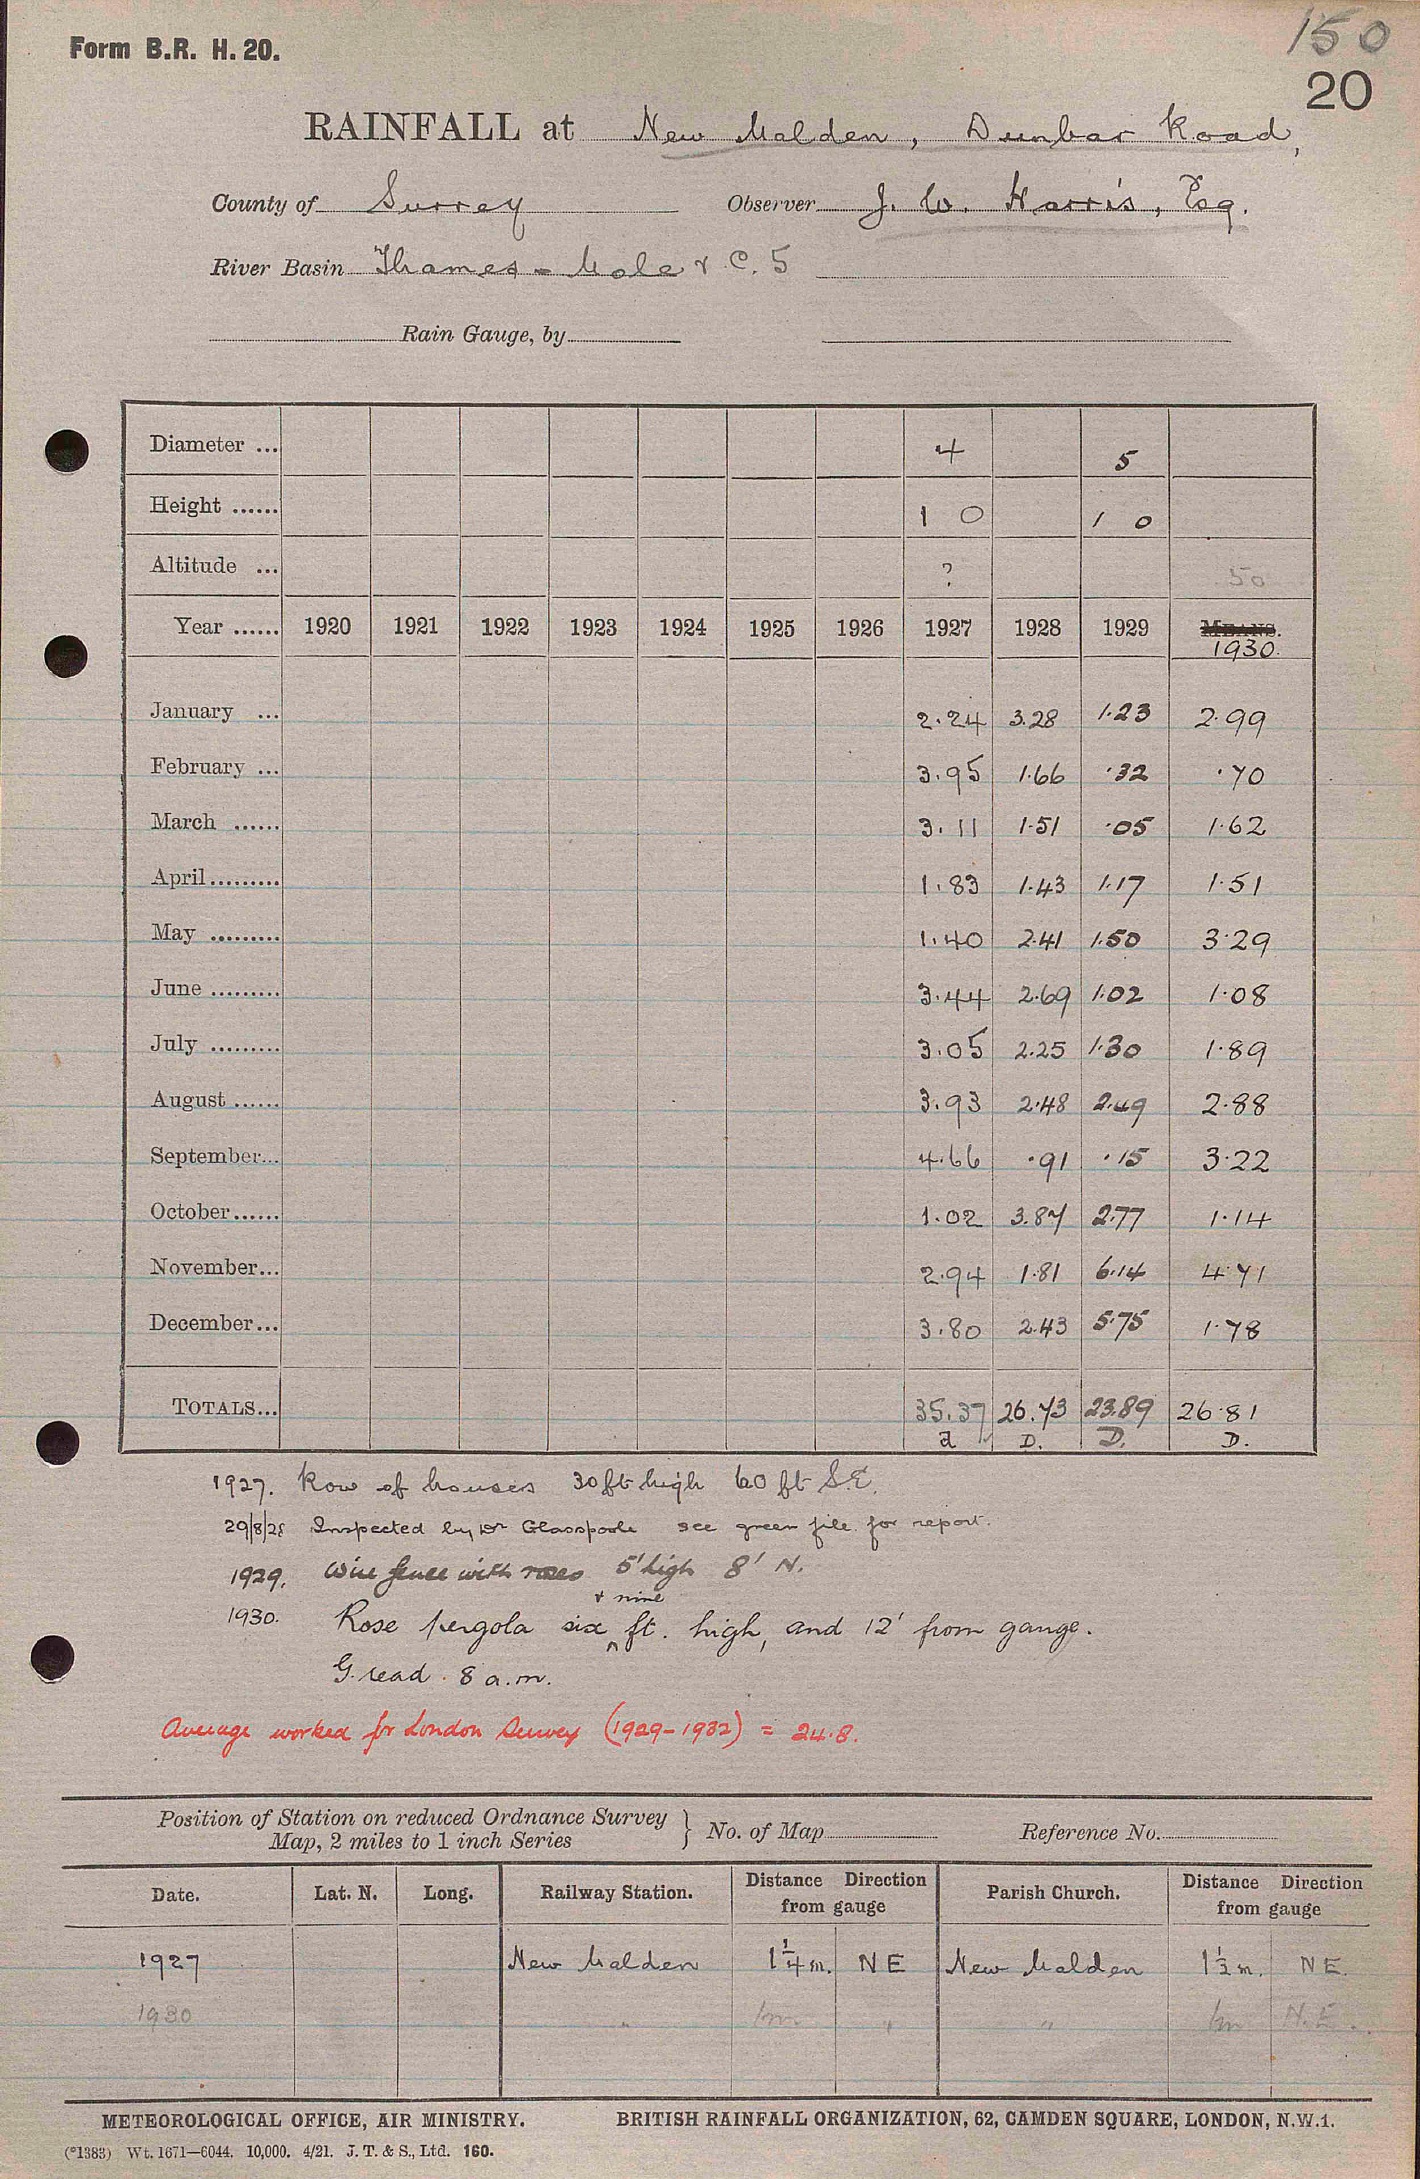 150
Form B.R. H. 20.
20
RAINFALL at New Malden, Dunbar Road,
County of Surrey Observer J. W. Harris, Esq.
River Basin Thames - Mole & C. 5
Rain Gauge, by
Diameter ... 4 5
Height ...... 1 0 1 0
Altitude ... ? 50
Year ...... 1920 1921 1922 1923 1924 1925 1926 1927 1928 1929 MEANS.
1930.
January ... 2.24 3.28 1.23 2.99
February ... 3.95 1.66 .32 .70
March ...... 3.11 1.51 .05 1.62
April ......... 1.83 1.43 1.17 1.51
May ......... 1.40 2.41 1.50 3.29
June ......... 3.44 2.69 1.02 1.08
July ......... 3.05 2.25 1.30 1.89
August ...... 3.93 2.48 2.49 2.88
September... 4.66 .91 .15 3.22
October ...... 1.02 3.87 2.77 1.14
November... 2.94 1.81 6.14 4.71
December... 3.80 2.43 5.75 1.78
TOTALS... 35.37 26.73 23.89 26.81
D. D. D.
1927. Row of houses 30 ft high 60 ft S.E.
29/8/28 Inspected by Dr Glasspoole see green file for report.
1929. Wire fence with roses 5' high 8' N.
& nine
1930. Rose pergola six ft. high, and 12' from gauge.
G. read . 8 a.m.
Average worked for London Survey (1929-1932) = 24.8.
Position of Station on reduced Ordnance Survey
Map, 2 miles to 1 inch Series } No. of Map Reference No.
Date. Lat. N. Long. Railway Station. Distance Direction from gauge Parish Church. Distance Direction from gauge
1927 New Malden 1¼ m. NE New Malden 1½ m. NE.
1930 " 1m. " " 1m N.E.
METEOROLOGICAL OFFICE, AIR MINISTRY. BRITISH RAINFALL ORGANIZATION, 62, CAMDEN SQUARE, LONDON, N.W.1.
(*1383) Wt. 1671—6044. 10,000. 4/21. J. T. & S., Ltd. 160.